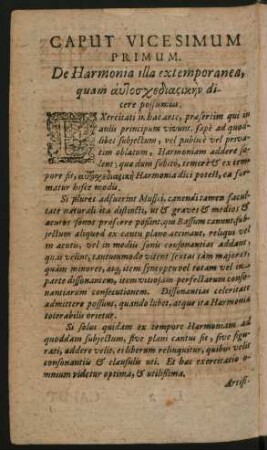 CAPUT VICESIMUM
PRIMUM.
De Harmonia illa extemporanea,
quam αὐτοσχεδιαςικὴν di-
cere possumus.
EXercitati in hac arte, præsertim qui in
aulis principum vivunt, sæpè ad quod-
libet subjectum, vel publicè vel priva-
tim oblatum, Harmoniam addere so-
lent; quæ dum subitò, temerè & ex tem-
pore fit, αὐτοσχεδιαςικὴ Harmonia dici potest, ea for-
matur hisce modis.
Si plures adfuerint Musici, canendi tamen facul-
tate naturali ita distincti, ut & graves & medios &
acutos sonos proferre possint, qui Bassum canunt sub-
jectum aliquod ex cantu plano accinant, reliqui vel
in acuto, vel in mediis sonis consonantias addant
quas velint, tantummodo vitent sextas tàm majores
quàm minores,
parte dissonantem, item vitiosam perfectarum conso-
nantiarum consecutionem. Dissonantias celeritate
admittere possunt, quando lubet, atque ita Harmonia
tolerabilis orietur.
Si solus quidam ex tempore Harmoniam ad
quoddam subjectum, sive plani cantus sit, sive figu-
rati, addere velit, ei liberum relinquitur, quibus velit
consonantiis & clausulis uti. Et hæc exercitatio o-
mnium videtur optima, & utilissima.
Artifi-